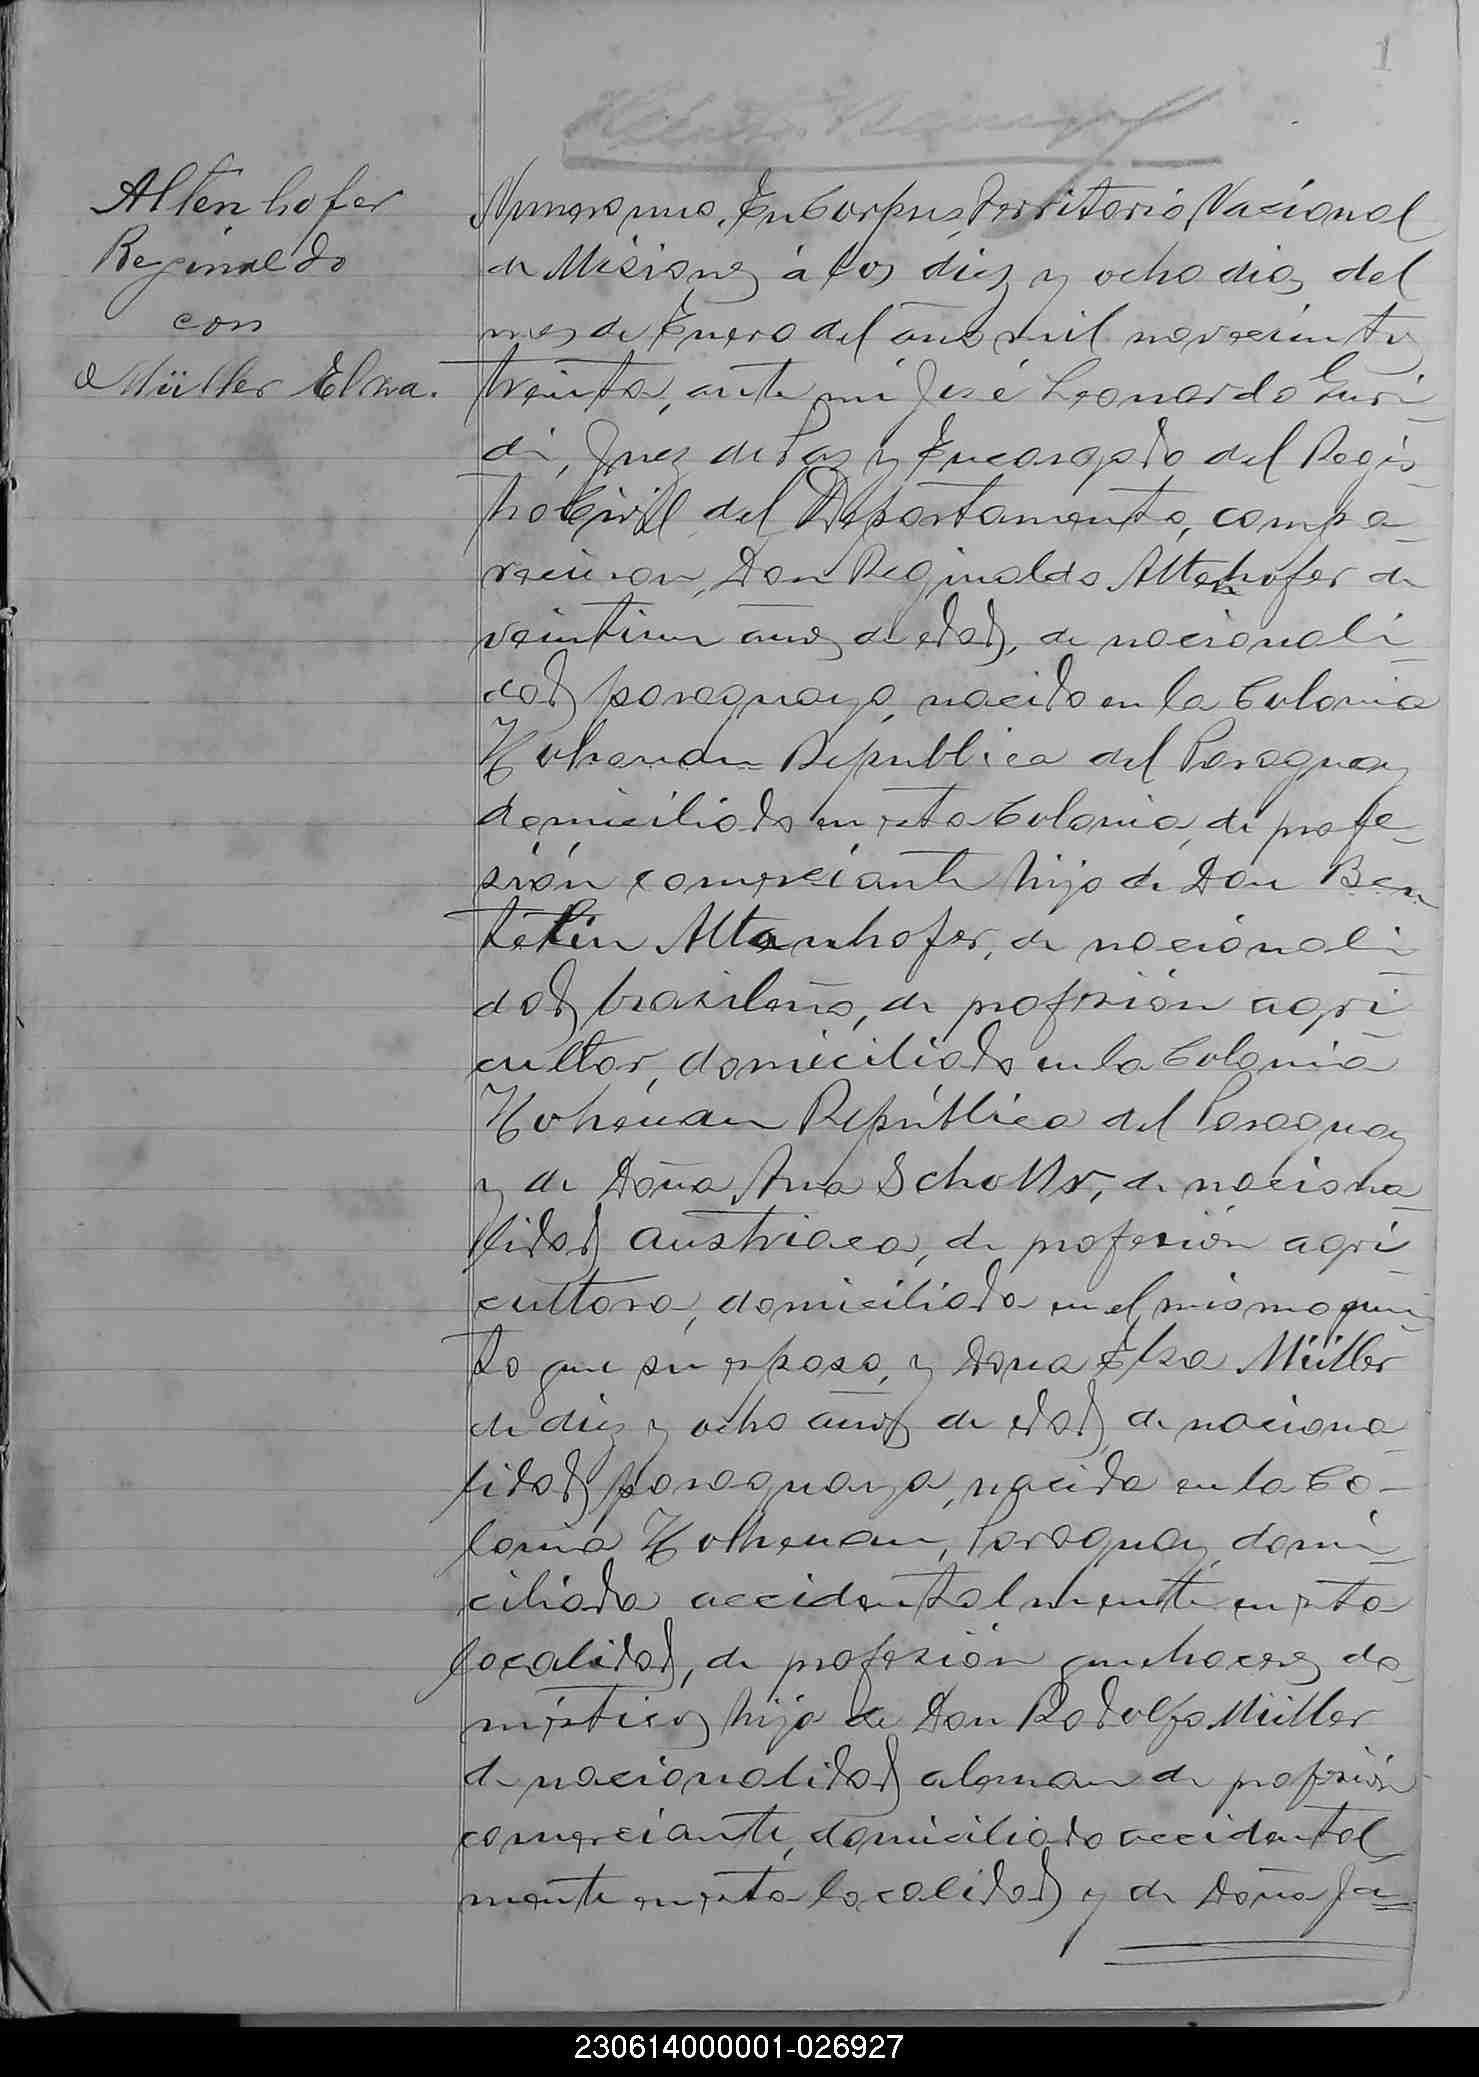 1
Altenhofer
Reginaldo
con
Müller Elsa.
Numero uno, En Corpus, Territorio Nacional
de Misiones á los diez y ocho dias del
mes de Enero del año mil novecientos
treinta, ante mi José Leonardo Guri-
di, Juez de Paz y Encargado del Regis-
tro Civil del Departamento, compa-
recieron, Don Reginaldo Altenhofer de
veintiun años de edad, de nacionali-
dad paraguayo, nacido en la Colonia
Hohenau República del Paraguay
domiciliado en esta Colonia, de profe-
sión comerciante hijo de Don
Altenhofer, de nacionali-
dad brasileño, de profesión agri-
cultor, domiciliado en la Colonia
Hohenau República del Paraguay
y de Doña Ana de naciona-
lidad austriaca, de profesión agri-
cultora, domiciliada en el mismo pun-
to que su esposo, y Doña Elsa Müller
de diez y ocho años de edad, de naciona-
lidad paraguaya, nacida en la Co-
lonia Hohenau, Paraguay, domi-
ciliada accidentalmente en esta
localidad, de profesión quehaceres do-
mésticos hija de Don Rodolfo Müller
de nacionalidad aleman de profesión
comerciante, domiciliado accidental-
mente en esta localidad y de Doña Ja=
230614000001-026927